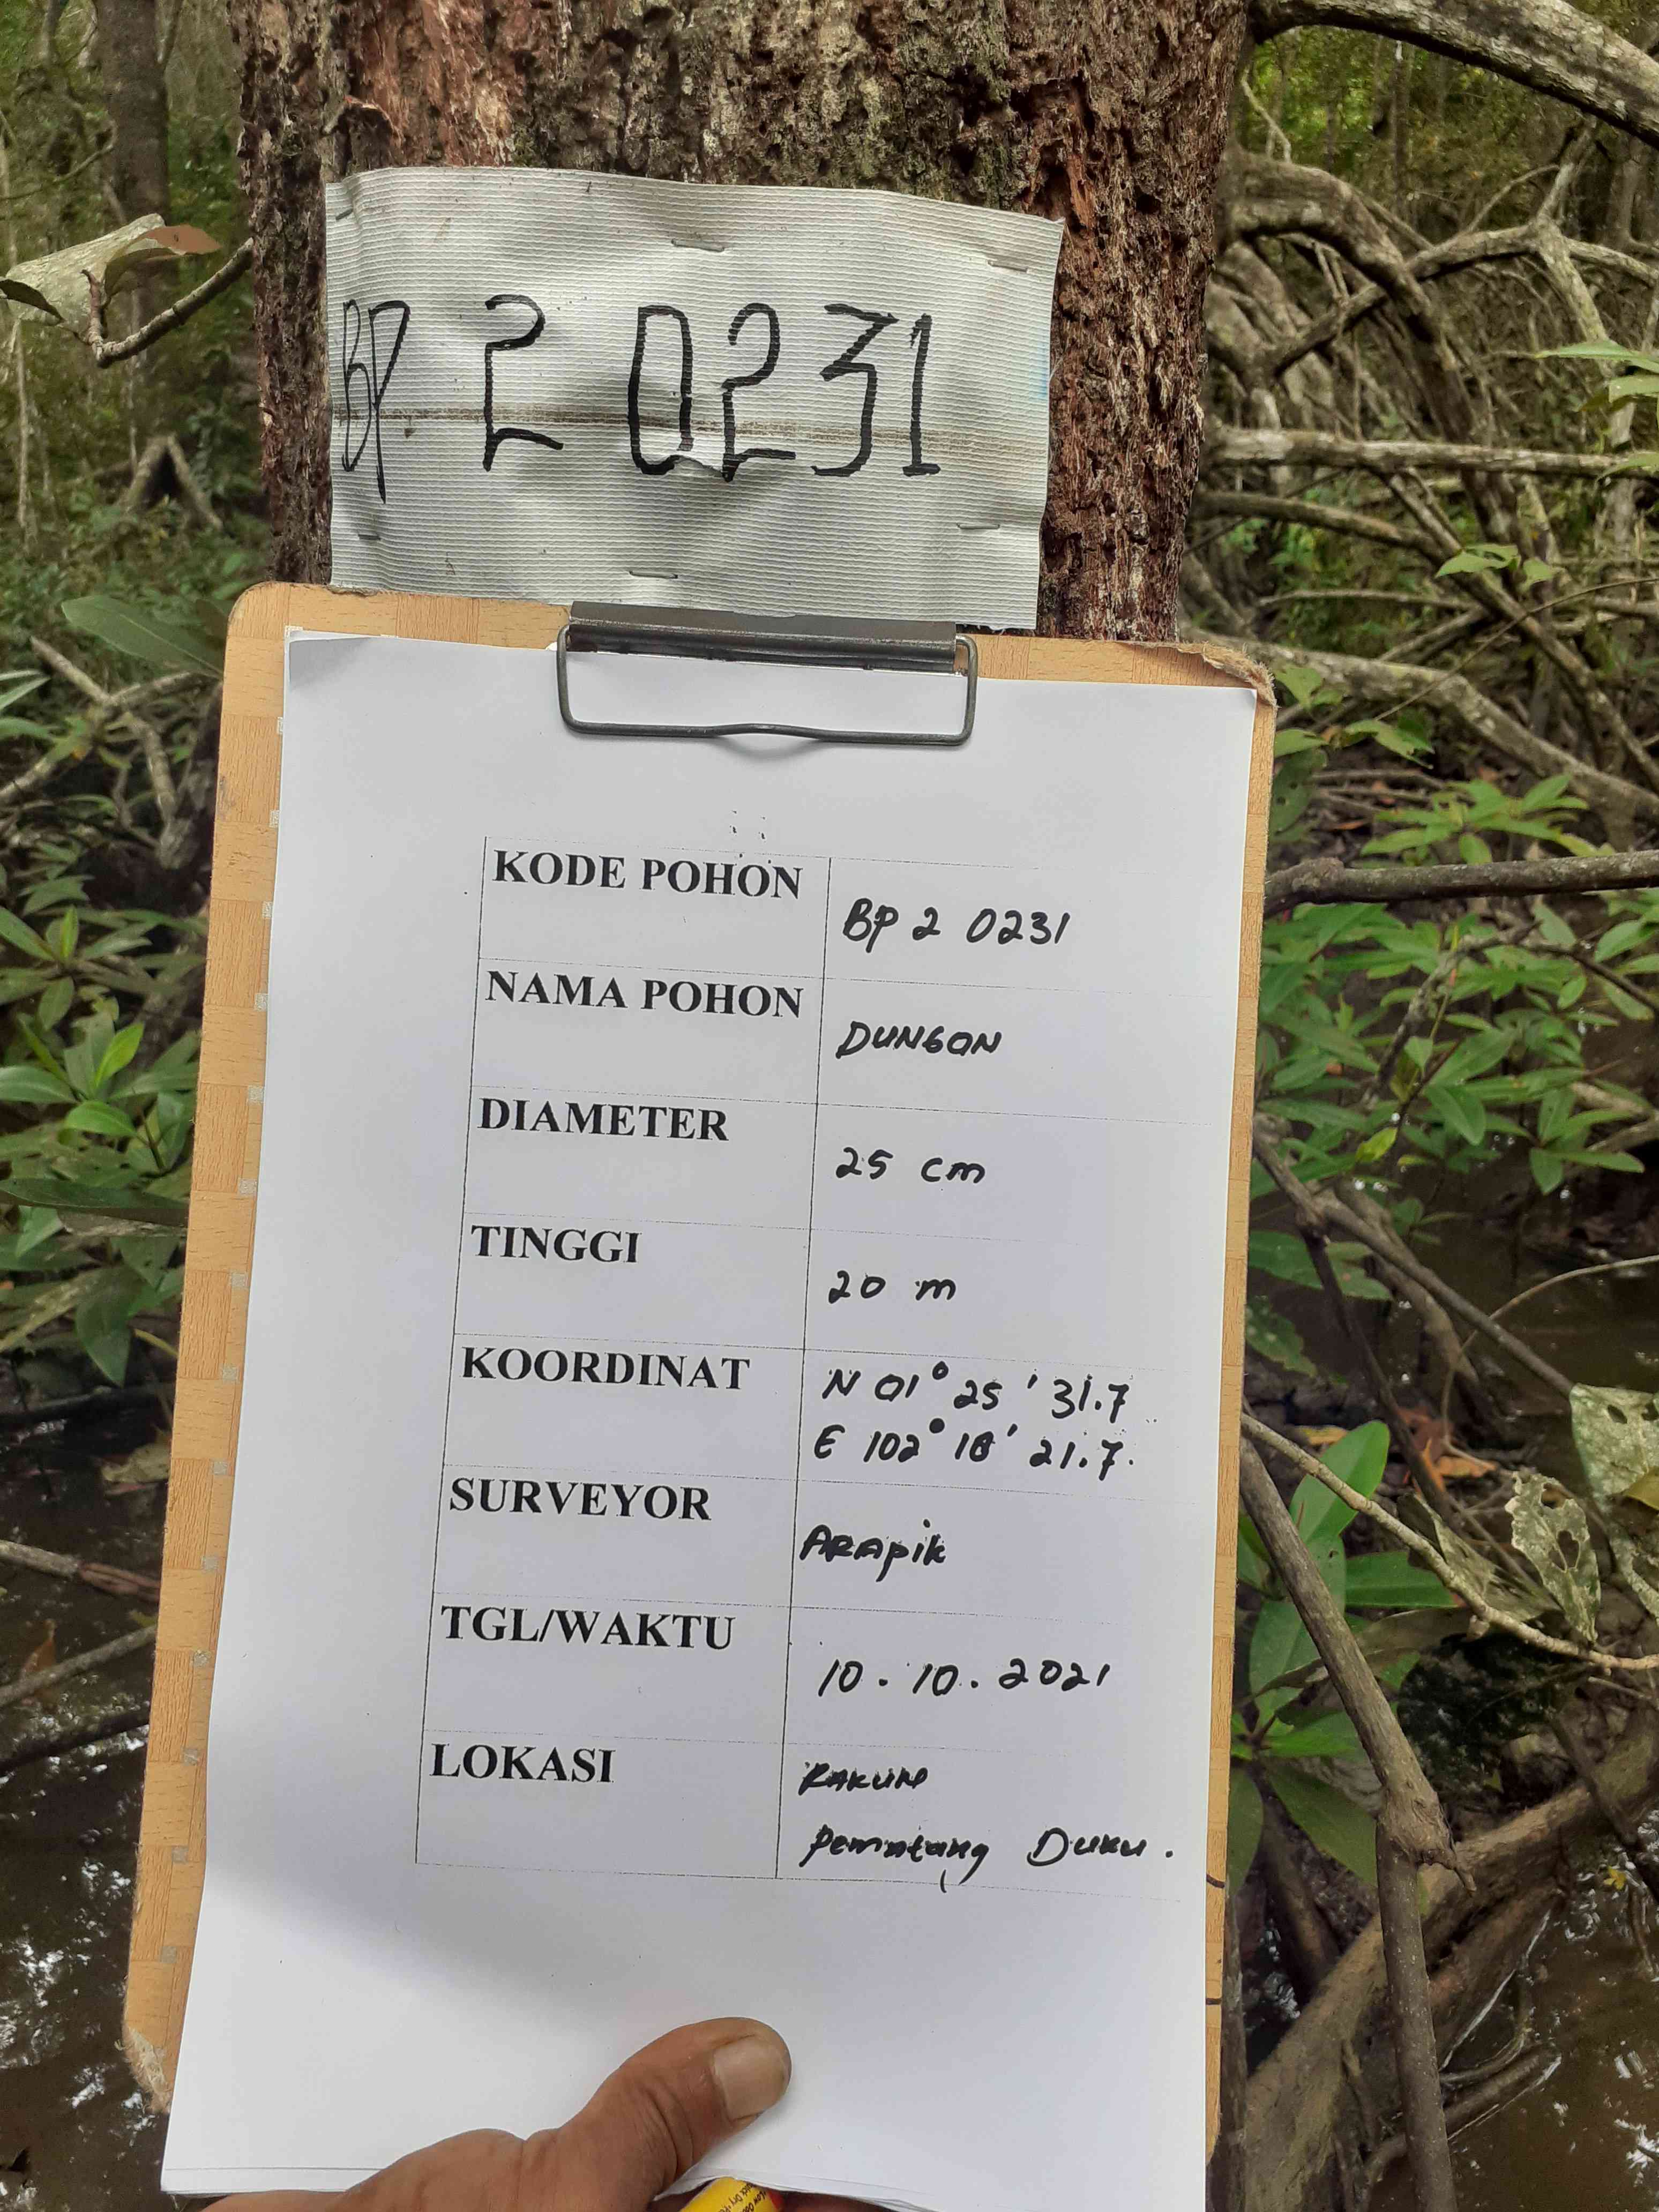 BP 2 0231
KODE POHON
BP 2 0231
NAMA POHON
DUNGON
DIAMETER
25 cm
TINGGI
20 m
KOORDINAT
N 01° 25 ' 31.7
E 102° 18' 21.7.
SURVEYOR
ARApik
TGL/WAKTU
10 . 10 . 2021
LOKASI
Pematang Duku .